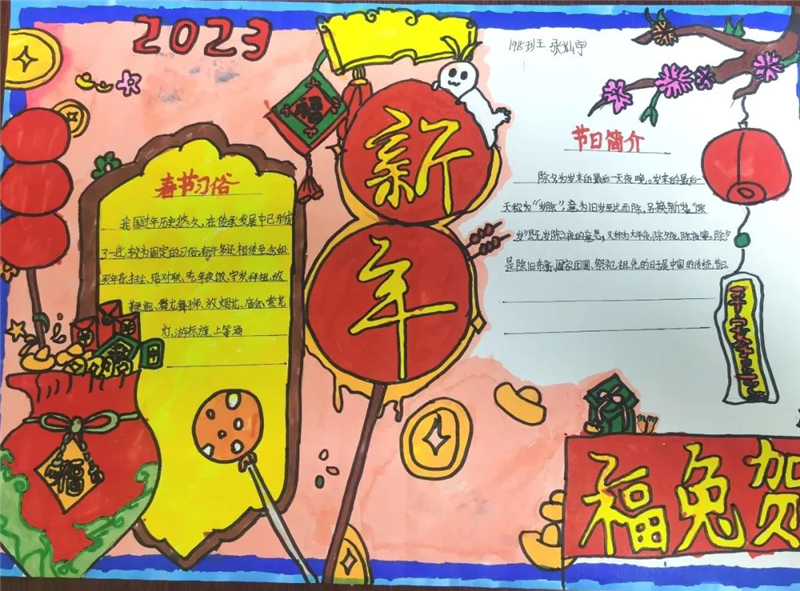 2023
福
新
年
198班 张灿宇
春节习俗
我国过年历史悠久,在传承发展中已形成
了一些较为固定的习俗,有许多还相传至今,如
买年货、扫尘、贴对联、吃年夜饭、守岁、拜祖、放
鞭炮、舞龙舞狮、放烟花、庙会、赏花
灯、游标旗、上笔酒
节日简介
除夕为岁末的最后一天夜晚。岁末的最后一
天称为"岁除",意为旧岁至此而除,另换新岁。"除
是除旧布新、阖家团圆、祭祀祖先的日子是中国的传统节日
福
福兔贺